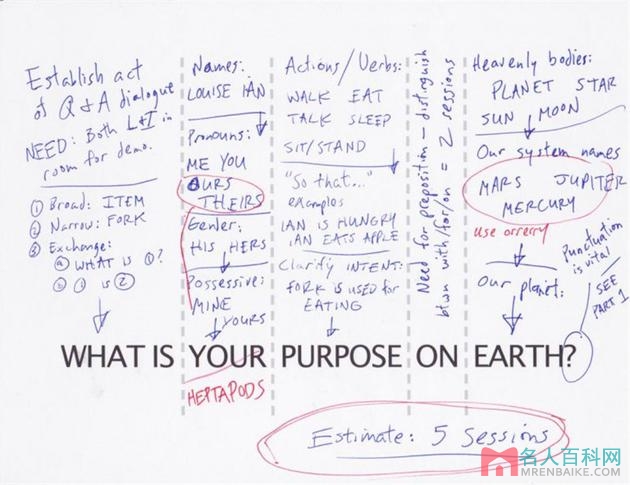 Establish act
of Q & A dialogue
NEED: Both L+I in
room for demo.
① Broad: ITEM
② Narrow: FORK
③ Exchange:
ⓐ WHAT IS ①?
ⓑ ① is ②
Names:
LOUISE IAN
Pronouns:
ME YOU
OURS
THEIRS
Gender:
HIS, HERS
Possessive:
MINE
YOURS
Actions/Verbs:
WALK EAT
TALK SLEEP
SIT/STAND
"So that..."
examples
IAN IS HUNGRY
IAN EATS APPLE
Clarify INTENT:
FORK IS USED for
EATING
Need for preposition - distinguish
btwn with/for/on = 2 sessions
Heavenly bodies:
PLANET STAR
SUN MOON
Our system names
MARS JUPITER
MERCURY
use orrery
Our planet:
Punctuation
is vital
SEE
PART 1
WHAT IS YOUR PURPOSE ON EARTH?
HEPTAPODS
Estimate: 5 Sessions
名人百科网
MRENBAIKE.COM